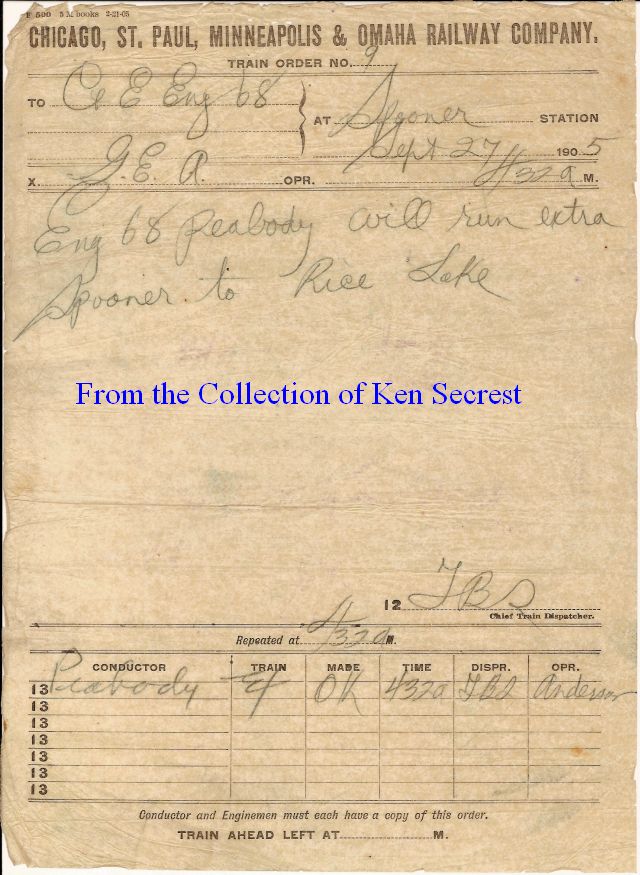 F 500 5 M. books 2-21-05
CHICAGO, ST. PAUL, MINNEAPOLIS & OMAHA RAILWAY COMPANY.
TRAIN ORDER NO. 9
TO C & E Eng 68 AT Spooner STATION
Sept 27 1905
X. G. E. A. OPR. 432a M.
Eng 68 Peabody will run extra
Spooner to Rice Lake
From the Collection of Ken Secrest
12 TBS
Chief Train Dispatcher.
Repeated at 432a M.
CONDUCTOR TRAIN MADE TIME DISPR. OPR.
13 Peabody OK 432a TBS Anderson
13
13
13
13
13
13
Conductor and Enginemen must each have a copy of this order.
TRAIN AHEAD LEFT AT M.